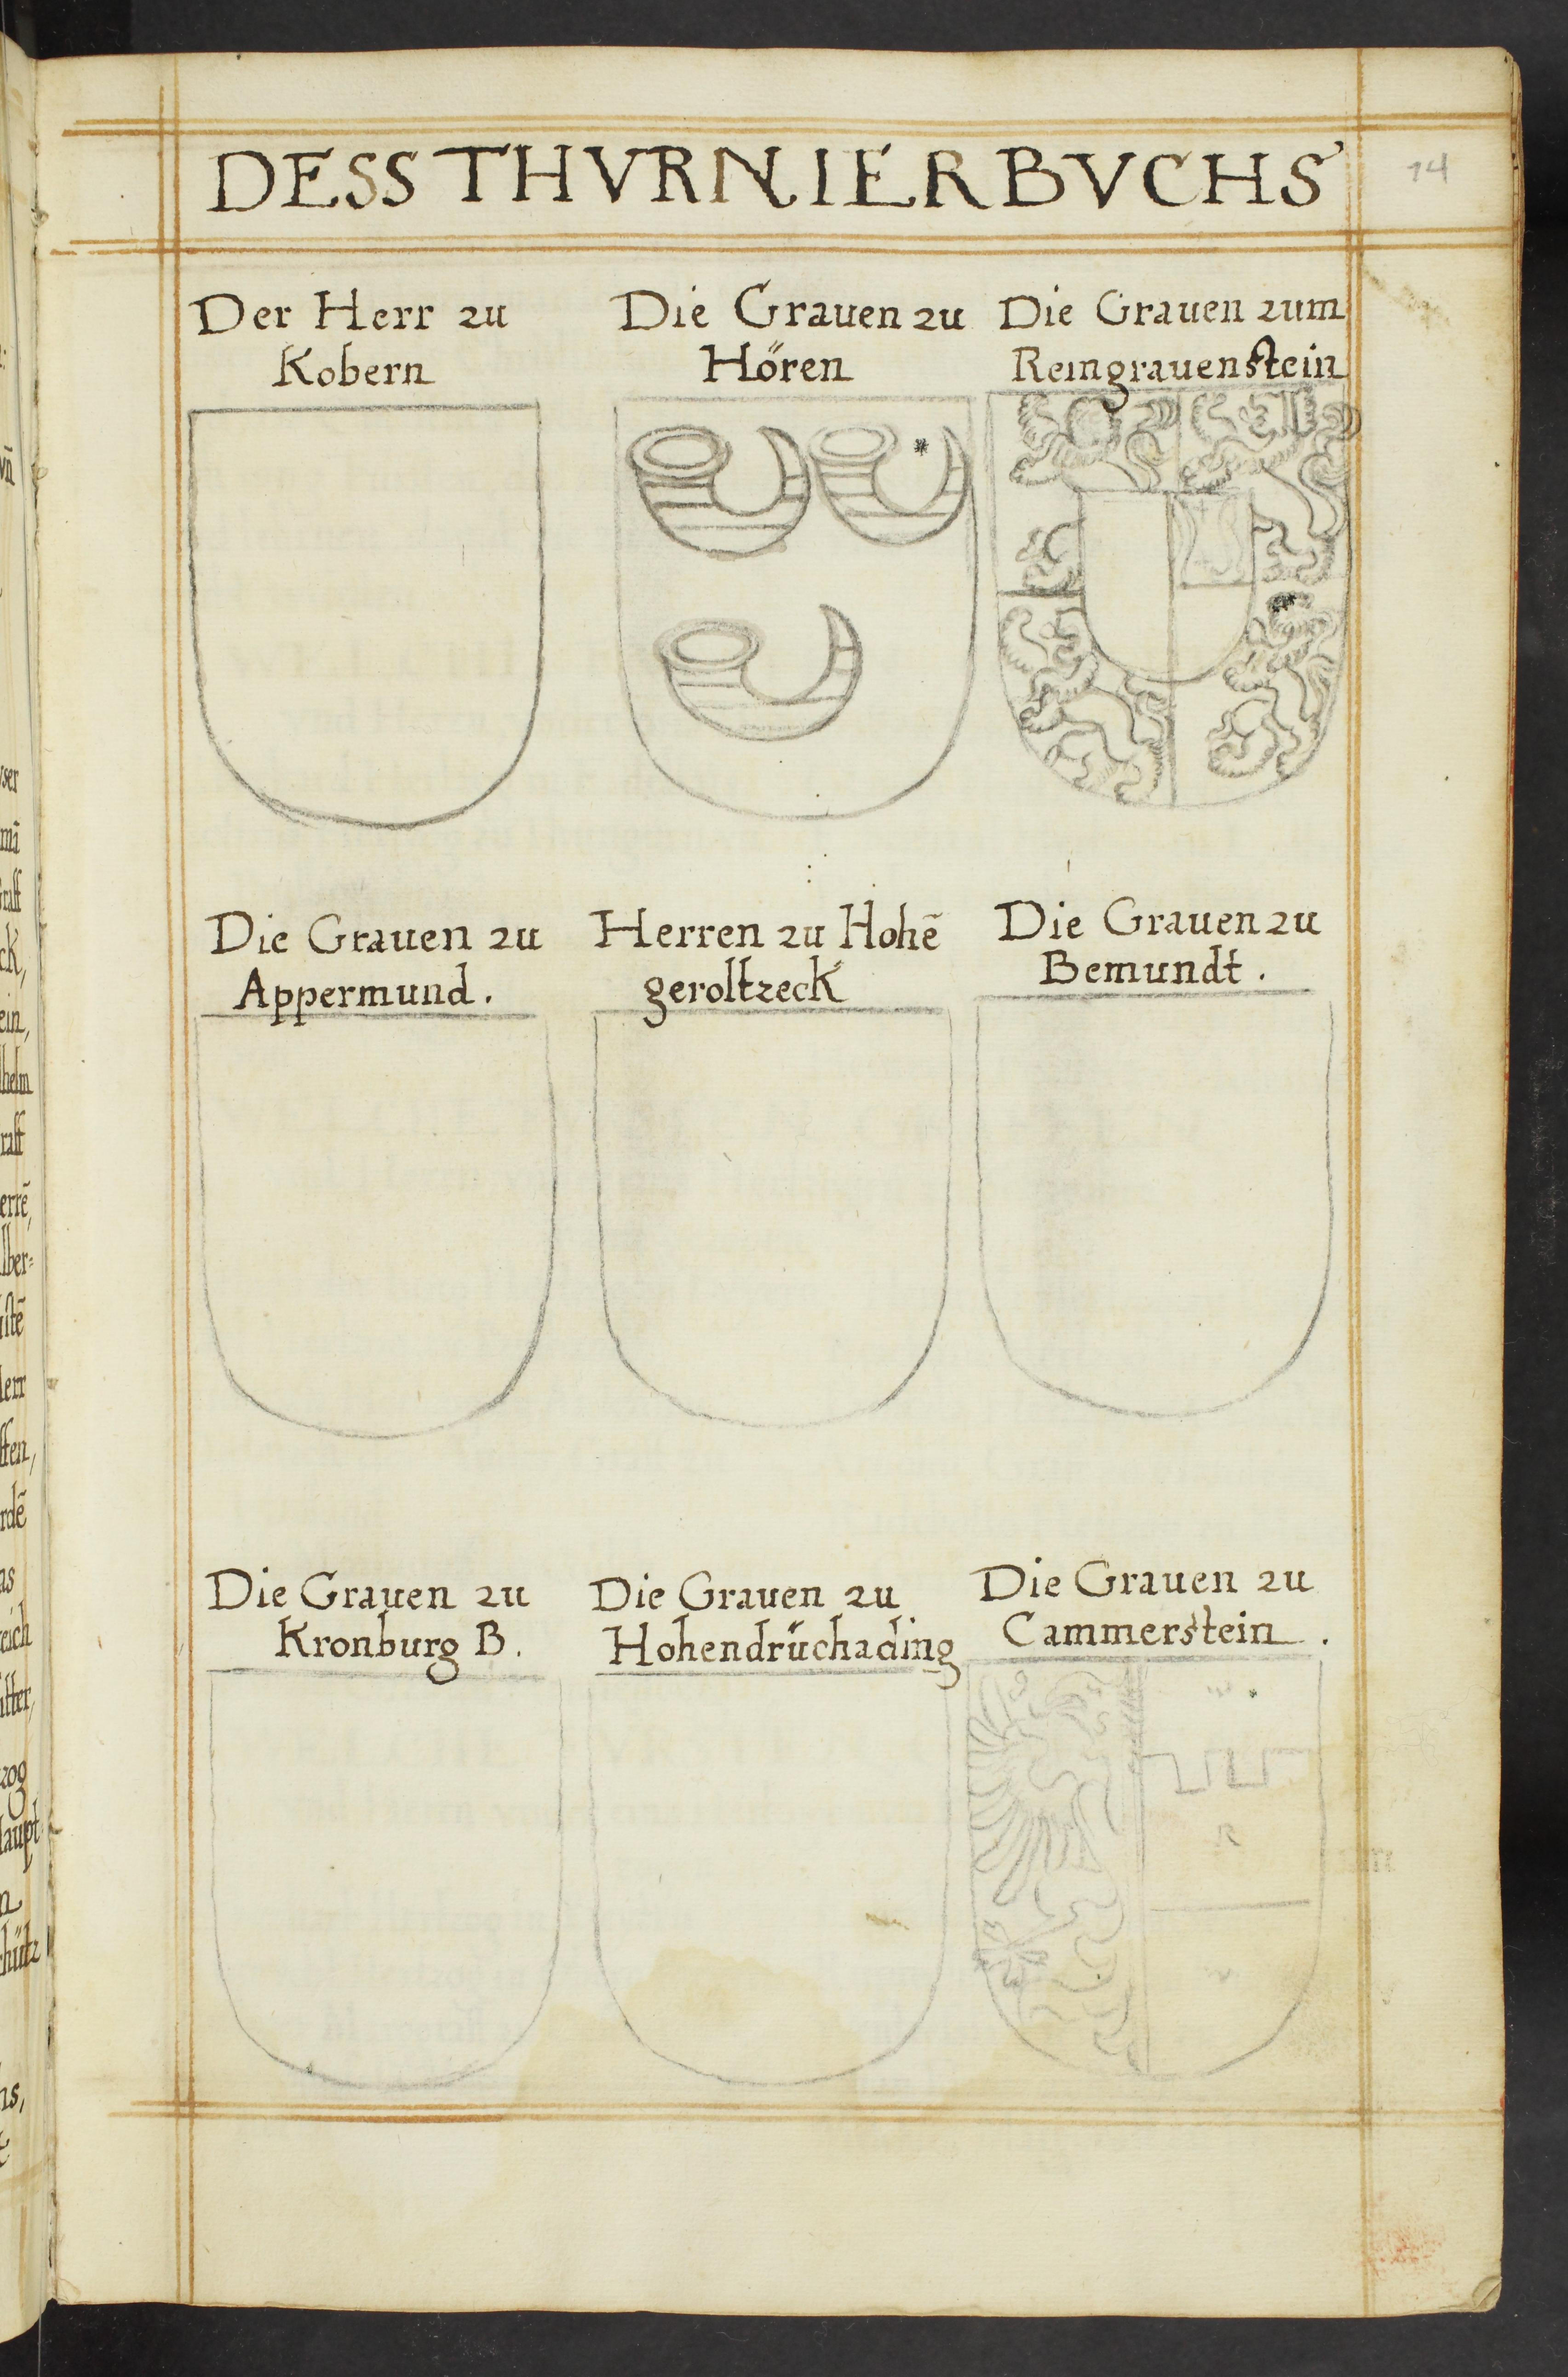 DESS THVRNIERBVCHS
14
Der Herr zu
Kobern
Die Grauen zu
Hören
Die Grauen zum
Reingrauenstein
Die Grauen zu
Appermund.
Herren zu Hohē
geroltzeck
Die Grauen zu
Bemundt.
Die Grauen zu
Kronburg B.
Die Grauen zu
Hohendrüchading
Die Grauen zu
Cammerstein.
R